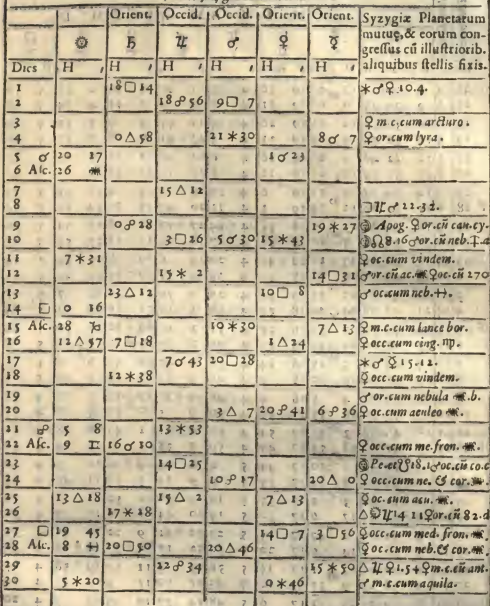 Orient. Occid. Occid. Orient. Orient. Syzygiæ Planetarum
mutuę, & eorum con-
☉ ♄ ♃ ♂ ♀ ☿ gressus cū illustriorib.
Dies H , H , H , H , H , H , aliquibus stellis fixis.
1 18 □ 14 ⚹ ♂ ♀ 10.4.
2 18 ☍ 56 9 □ 7
3 ♀ m.c.cum arcturo.
4 0 △ 58 21 ⚹ 30 8 ☌ 7 ♀ or.cum lyra.
5 ☌ 20 17 1 ☌ 23
6 Asc. 26 ♏
7 15 △ 12
8 □ ♃ ♂ 22.32.
9 0 ☍ 28 19 ⚹ 27 Apog. ♀ or.cū can.cy.
10 3 □ 26 5 ☌ 30 15 ⚹ 43 ☊ 8.16 ♂ or.cū neb.
11 7 ⚹ 31 ♀ oc.cum vindem.
12 15 ⚹ 2 14 □ 31 ♂ or.cū ac. ♏ ♀ oc.cū 270
13 23 △ 12 10 □ 8 ♂ oc.cum neb. ♐.
14 □ 0 16
15 Asc. 28 ♑ 10 ⚹ 30 7 △ 13 ♀ m.c.cum lance bor.
16 12 △ 57 7 □ 18 1 △ 24 ♀ occ.cum cing. ♍.
17 7 ☌ 43 20 □ 28 ⚹ ♂ ☿ 15.12.
18 12 ⚹ 38 ☿ occ.cum vindem.
19 ♂ or.cum nebula ♏.b.
20 3 △ 7 20 ☍ 41 6 ☍ 36 ♀ oc.cum aculeo ♏.
21 ☍ 5 8 13 ⚹ 53
22 Asc. 9 ♊ 16 ☌ 10 ♀ occ.cum me.fron. ♏.
23 14 □ 25
24 10 ☍ 17 20 △ 0 ♀ occ.cum ne. & cor. ♏.
25 13 △ 18 15 △ 2 7 △ 13 ☿ oc.cum acu. ♏.
26 17 ⚹ 28
27 □ 19 45 14 □ 7 3 □ 56 ☿ occ.cum med. fron. ♏.
28 Asc. 8 ♓ 20 □ 50 20 △ 46 ☿ oc.cum neb. & cor. ♏.
29 22 ☍ 34 15 ⚹ 50 △ ♃ ♀ 1.5
30 5 ⚹ 20 0 ⚹ 46 ♂ m.c.cum aquila.